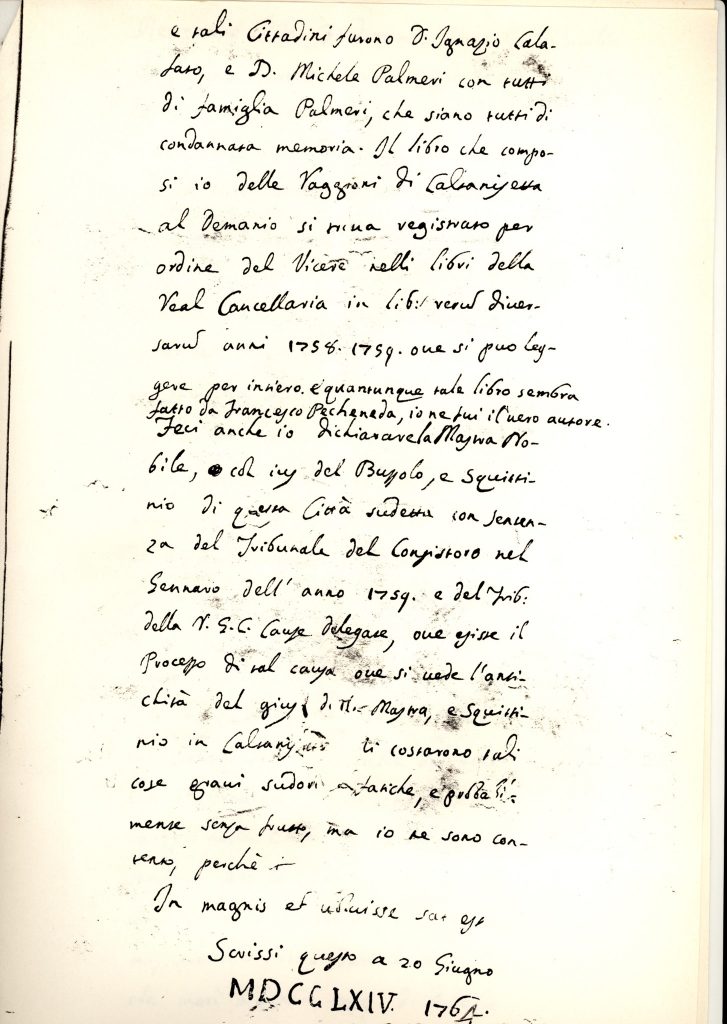 e tali Cittadini furono D. Ignazio Cala-
fato, e D. Michele Palmeri con tutti
di famiglia Palmeri, che siano tutti di
condannata memoria. Il libro che compo-
si io delle Raggioni di Caltanissetta
al Demanio si truva registrato per
ordine del Vicerè nelli libri della
Real Cancellaria in lib:
sarum anni 1758. 1759. ove si puo leg-
gere per intiero. e quantunque tale libro sembra
fatto da Francesco Pecheneda, io ne fui il vero autore.
Feci anche io dichiarare la Mastra No-
bile, col ius del Bussolo, e Squitti-
nio di questa Città sudetta con senten-
za del Tribunale del Concistoro nel
Gennaro dell' anno 1759. e del Trib:
della R. G. C. Cause delegate, ove esiste il
Processo di tal causa ove si vede l'anti-
chità del gius di Mastra, e Squitti-
nio in ti costarono tali
cose gravi sudori fatiche, e probabil-
mente senza frutto, ma io ne sono con-
tento, perchè
In magnis et voluisse sat est
Scrissi questo a 20 Giugno
MDCCLXIV. 1764.